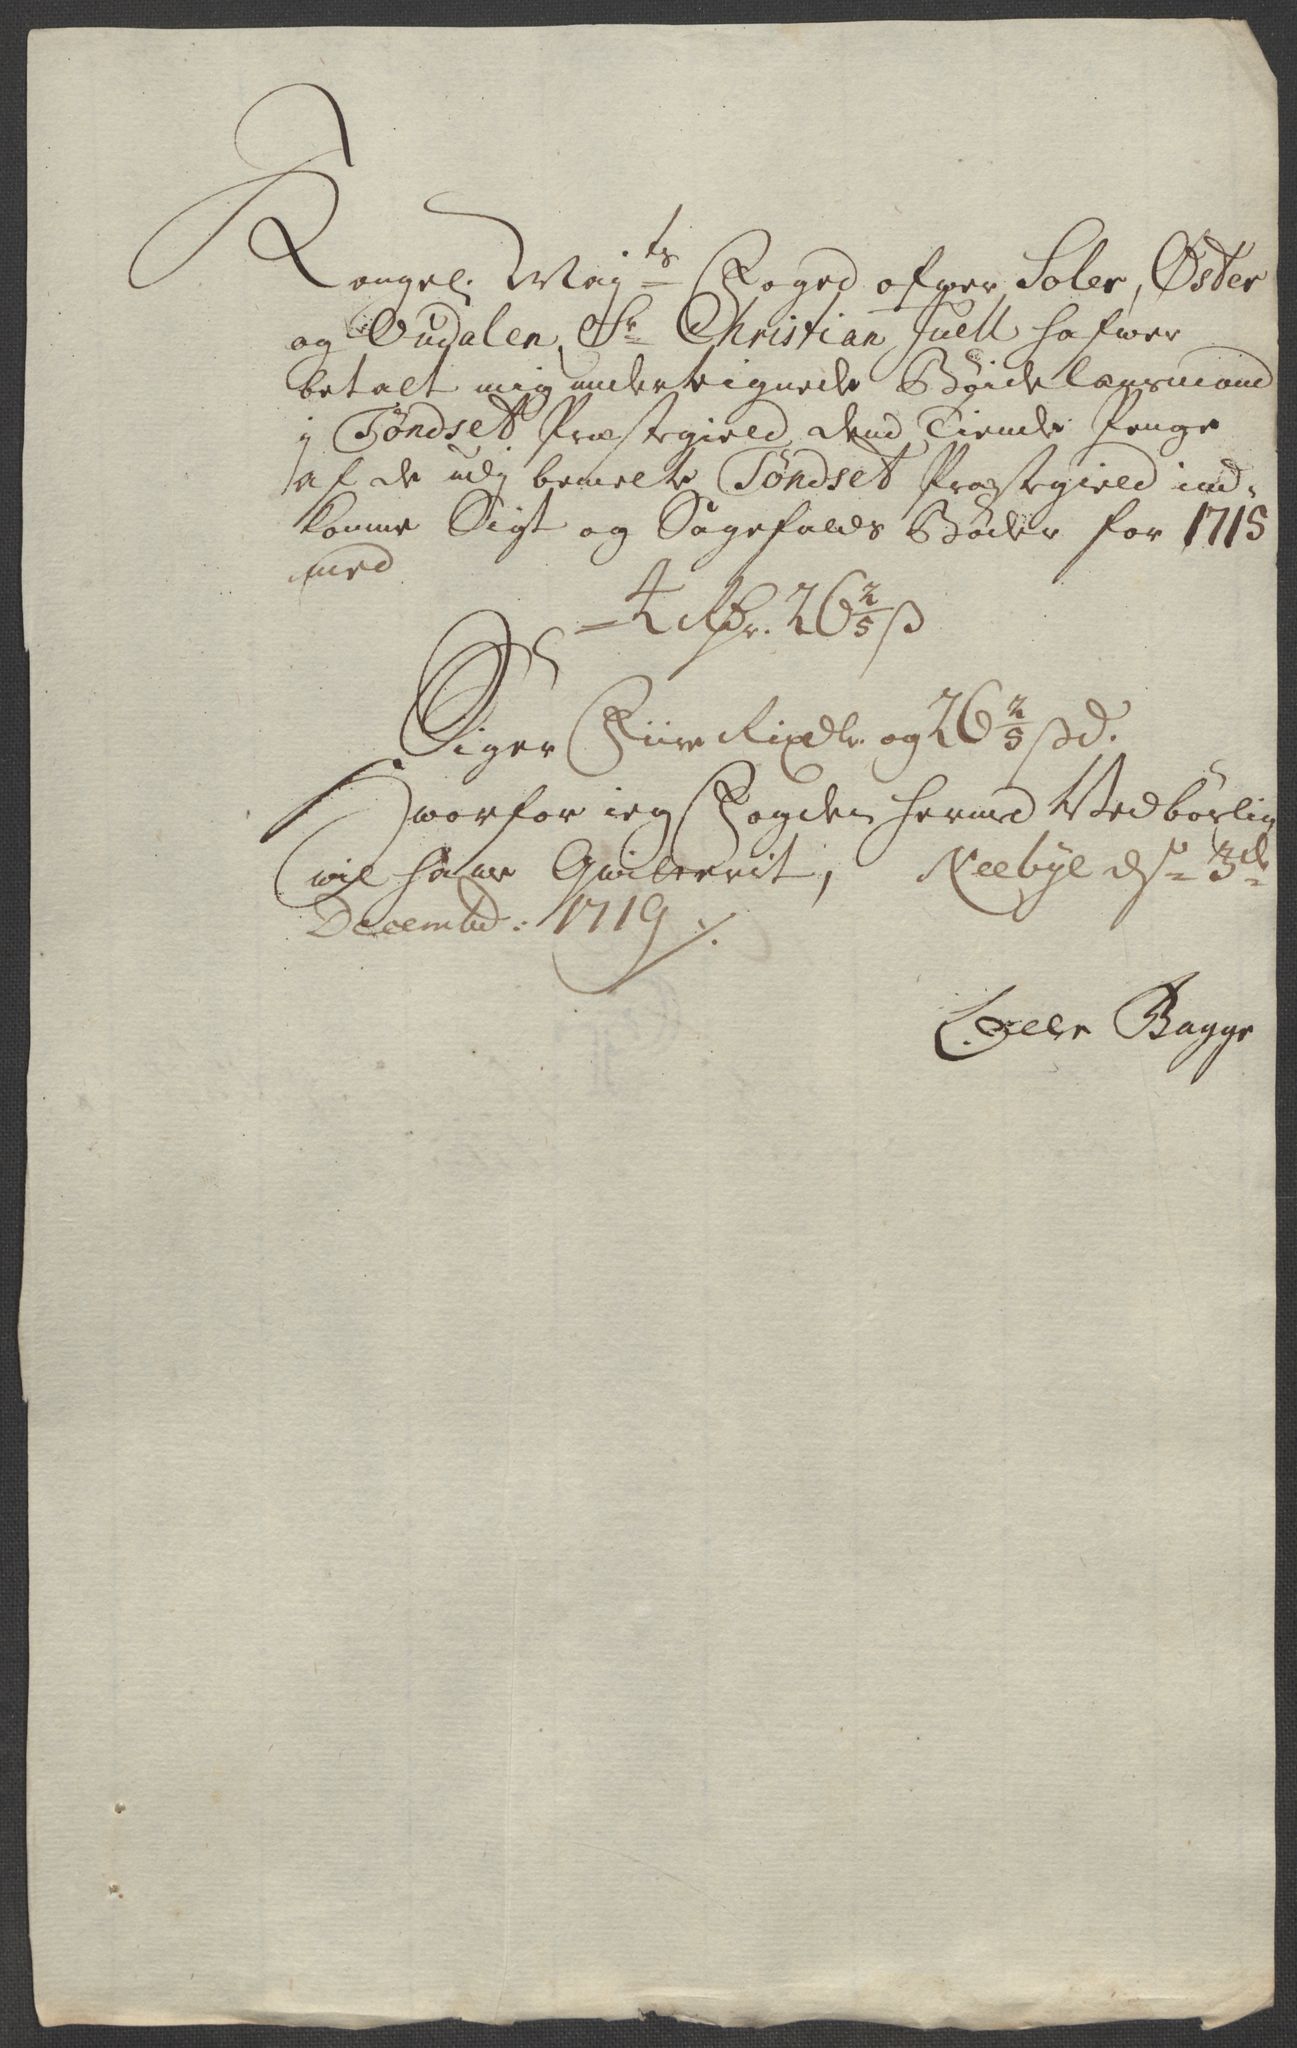 Kongel. Maj:ts Foged ofwer Soler, Öster
og Oudalen, Sr. Christian Juell hafwer
betalt mig undertegnede Böide lænsmand
i Töndset Præstegield, dend Tiende Penge
af de udj bemelte Töndset Præstegield ind-
komne Sigt og Sagefalds Böder for 1715
med
- 4 Rdr. 26 2/5 ß
Siger Fiire Rixdlr og 26 2/5 ß d.
Hvorfor ieg Fogden hermed Vedbörlig
vil hawe Qviterrit, Neebye dn 3de
Decembr: 1719 ./.
Bagge